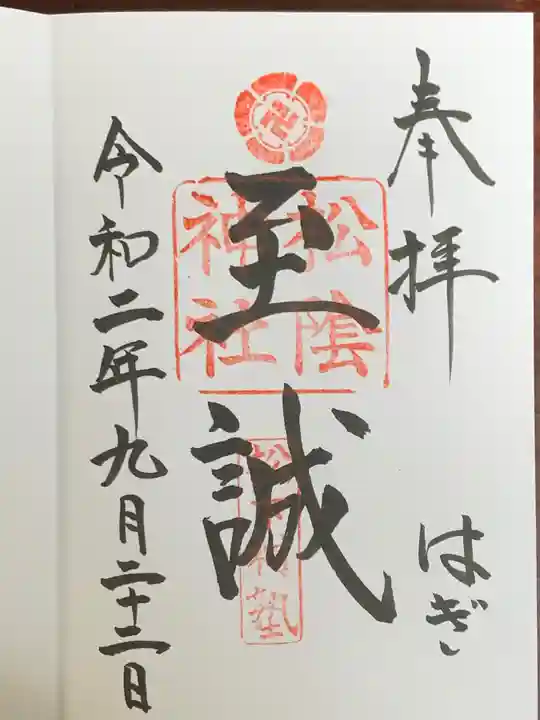 奉拝
はぎ
卍
松陰
神社
至誠
松下村塾
令和二年九月二十二日